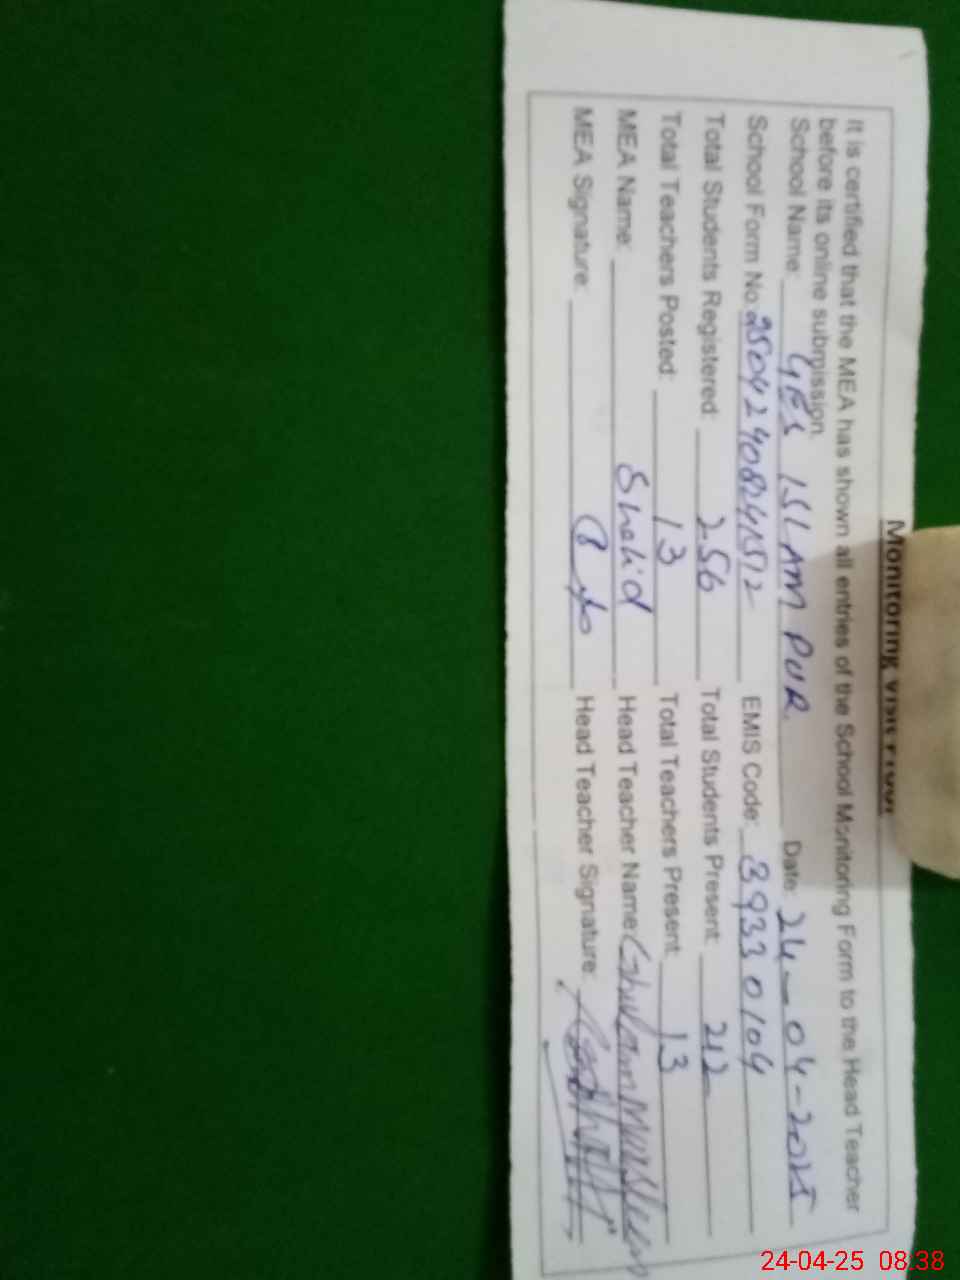 Monitoring Visit Proof
It is certified that the MEA has shown all entries of the School Monitoring Form to the Head Teacher
before its online submission.
School Name: GES ISLAM PUR. Date: 24-04-2025
School Form No. EMIS Code: 39330104
Total Students Registered: 256 Total Students Present: 212
Total Teachers Posted: 13 Total Teachers Present: 13
MEA Name: Shahid Head Teacher Name: Ghulam
MEA Signature: Head Teacher Signature:
24-04-25 08:38